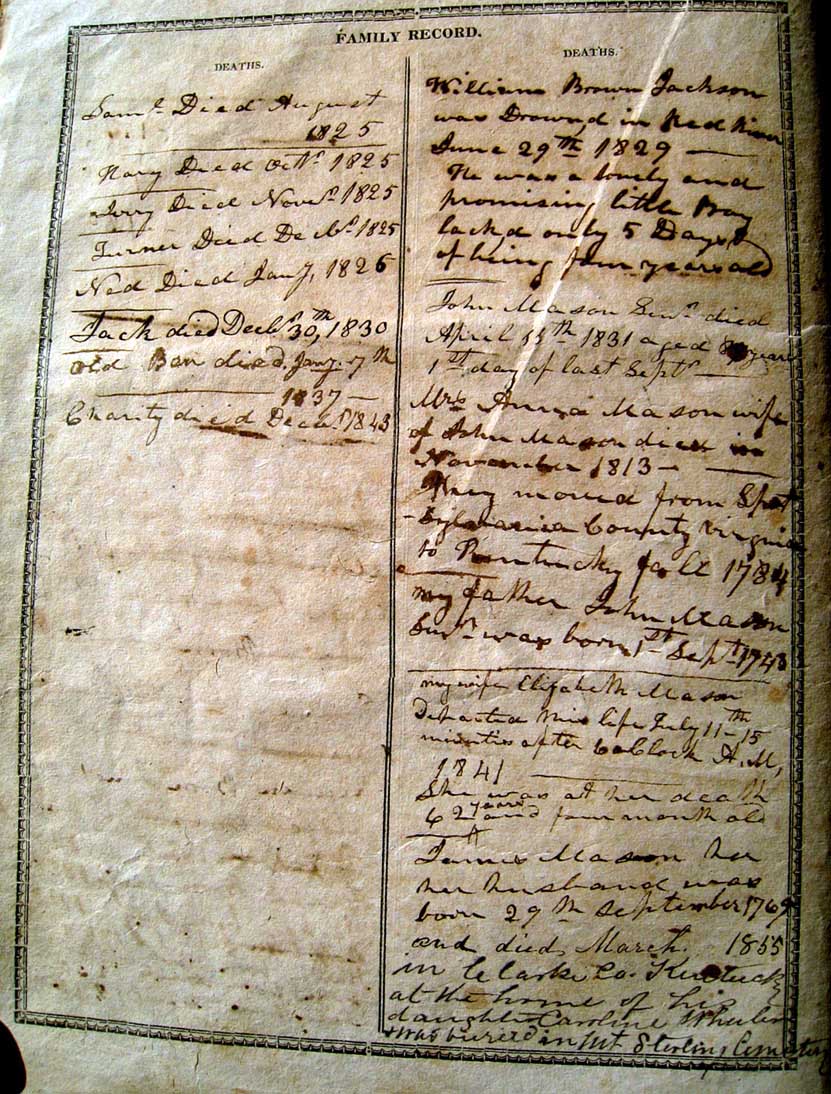 FAMILY RECORD.
DEATHS.
Saml. Died August
1825
Mary Died Octr. 1825
Jerry Died Novr. 1825
Turner Died Decbr. 1825
Ned Died Jany, 1826
Jack died Decbr. 30th, 1830
Old Ben died Jany. 7th
1837 —
Charity died Decr. 1843
DEATHS.
William Brown Jackson
was Drownd in Red River
June 29th 1829 —
He was a lovely and
promising little Boy
lackd only 5 Days
of being four years old
John Mason Senr. died
April 15th 1831 aged years
1st day of last Septr —
Mrs Anna Mason wife
of John Mason died in
November 1813 —
They moved from Spot
-sylvania County Virginia
to Kentucky fall 1784
my father John Mason
Senr. was born 1st Sept. 1748
my wife Elizabeth Mason
Departed this life July 11th - 15
minutes after 6 oClock A.M,
1841
She was at her death
62 years and four month old
James Mason her
her husband was
born 29th September 1769
and died March, 1855
in Clarke Co. Kentucky
at the home of his
daughter Caroline Wheeler
& was buried in Mt Sterling Cemetery